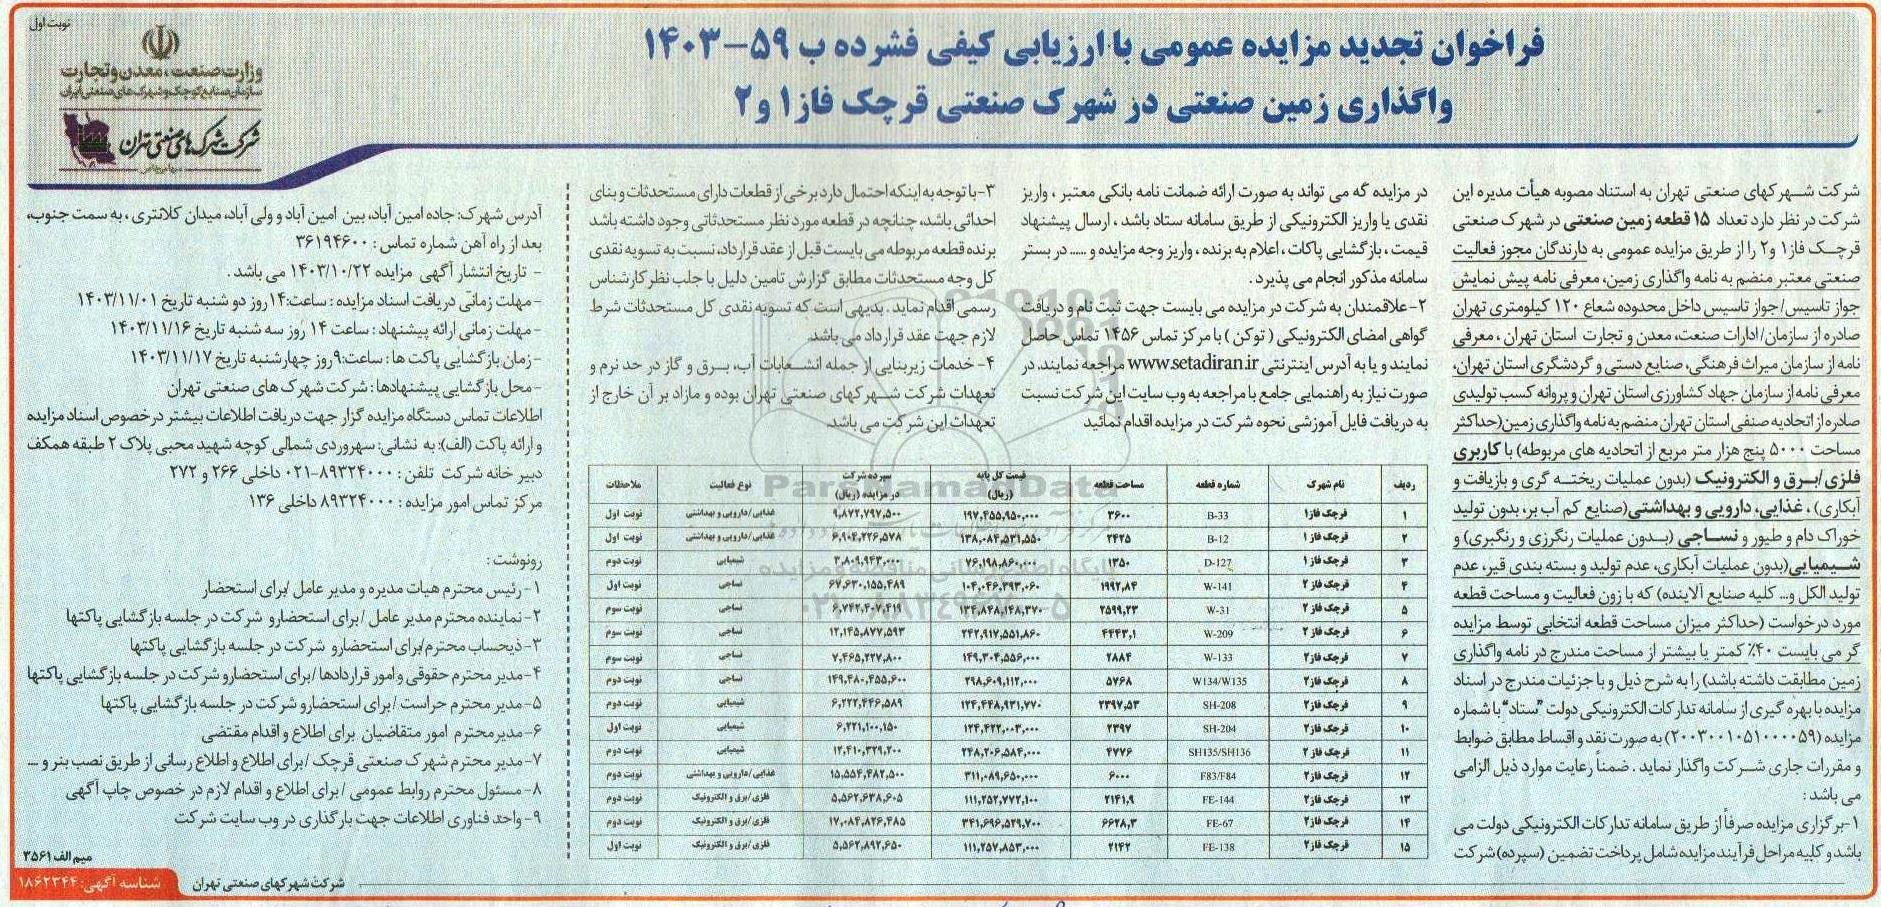 نوبت اول
فراخوان تجدید مزایده عمومی با ارزیابی کیفی فشرده ب ۵۹-۱۴۰۳
واگذاری زمین صنعتی در شهرک صنعتی قرچک فاز ۱ و ۲
وزارت صنعت، معدن و تجارت
سازمان صنایع کوچک و شهرک‌های صنعتی ایران
شرکت شهرک های صنعتی تهران
شرکت شهرکهای صنعتی تهران به استناد مصوبه هیأت مدیره این
شرکت در نظر دارد تعداد ۱۵ قطعه زمین صنعتی در شهرک صنعتی
قرچک فاز ۱ و ۲ را از طریق مزایده عمومی به دارندگان مجوز فعالیت
صنعتی معتبر منضم به نامه واگذاری زمین، معرفی نامه پیش نمایش
جواز تاسیس/جواز تاسیس داخل محدوده شعاع ۱۲۰ کیلومتری تهران
صادره از سازمان/ادارات صنعت، معدن و تجارت استان تهران ، معرفی
نامه از سازمان میراث فرهنگی، صنایع دستی و گردشگری استان تهران،
معرفی نامه از سازمان جهاد کشاورزی استان تهران و پروانه کسب تولیدی
صادره از اتحادیه صنفی استان تهران منضم به نامه واگذاری زمین(حداکثر
مساحت ۵۰۰۰ پنج هزار متر مربع از اتحادیه های مربوطه) با کاربری
فلزی/برق و الکترونیک (بدون عملیات ریخته گری و بازیافت و
آبکاری) ، غذایی، دارویی و بهداشتی(صنایع کم آب بر، بدون تولید
خوراک دام و طیور و نساجی (بدون عملیات رنگرزی و رنگبری) و
شیمیایی(بدون عملیات آبکاری، عدم تولید و بسته بندی قیر، عدم
تولید الکل و... کلیه صنایع آلاینده) که با زون فعالیت و مساحت قطعه
مورد درخواست (حداکثر میزان مساحت قطعه انتخابی توسط مزایده
گر می بایست ۴۰٪ کمتر یا بیشتر از مساحت مندرج در نامه واگذاری
زمین مطابقت داشته باشد) را به شرح ذیل و با جزئیات مندرج در اسناد
مزایده با بهره گیری از سامانه تدارکات الکترونیکی دولت "ستاد" با شماره
مزایده (۲۰۰۳۰۰۱۰۵۱۰۰۰۰۵۹) به صورت نقد و اقساط مطابق ضوابط
و مقررات جاری شرکت واگذار نماید . ضمناً رعایت موارد ذیل الزامی
می باشد :
۱-برگزاری مزایده صرفاً از طریق سامانه تدارکات الکترونیکی دولت می
باشد و کلیه مراحل فرآیند مزایده شامل پرداخت تضمین (سپرده) شرکت
در مزایده که می تواند به صورت ارائه ضمانت نامه بانکی معتبر ، واریز
نقدی یا واریز الکترونیکی از طریق سامانه ستاد باشد ، ارسال پیشنهاد
قیمت ، بازگشایی پاکات ، اعلام به برنده ، واریز وجه مزایده و ..... در بستر
سامانه مذکور انجام می پذیرد .
۲-علاقمندان به شرکت در مزایده می بایست جهت ثبت نام و دریافت
گواهی امضای الکترونیکی ( توکن ) با مرکز تماس ۱۴۵۶ تماس حاصل
نمایند و یا به آدرس اینترنتی www.setadiran.ir مراجعه نمایند. در
صورت نیاز به راهنمایی جامع با مراجعه به وب سایت این شرکت نسبت
به دریافت فایل آموزشی نحوه شرکت در مزایده اقدام نمائید
۳-با توجه به اینکه احتمال دارد برخی از قطعات دارای مستحدثات و بنای
احداثی باشد، چنانچه در قطعه مورد نظر مستحدثاتی وجود داشته باشد
برنده قطعه مربوطه می بایست قبل از عقد قرارداد، نسبت به تسویه نقدی
کل وجه مستحدثات مطابق گزارش تامین دلیل با جلب نظر کارشناس
رسمی اقدام نماید . بدیهی است که تسویه نقدی کل مستحدثات شرط
لازم جهت عقد قرارداد می باشد.
۴- خدمات زیربنایی از جمله انشعابات آب، برق و گاز در حد نرم و
تعهدات شرکت شهرکهای صنعتی تهران بوده و مازاد بر آن خارج از
تعهدات این شرکت می باشد.
ردیف نام شهرک شماره قطعه مساحت قطعه قیمت کل پایه (ریال) سپرده شرکت در مزایده (ریال) نوع فعالیت ملاحظات
۱ قرچک فاز۱ B-33 ۳۶۰۰ ۱۹۷,۴۵۵,۹۵۰,۰۰۰ ۹,۸۷۲,۷۹۷,۵۰۰ غذایی/دارویی و بهداشتی نوبت اول
۲ قرچک فاز۱ B-12 ۲۴۲۵ ۱۳۸,۰۸۴,۵۳۱,۵۵۰ ۶,۹۰۴,۲۲۶,۵۷۸ غذایی/دارویی و بهداشتی نوبت اول
۳ قرچک فاز۱ D-127 ۱۳۵۰ ۷۶,۱۹۸,۸۶۰,۰۰۰ ۳,۸۰۹,۹۴۳,۰۰۰ شیمیایی نوبت دوم
۴ قرچک فاز۲ W-141 ۱۹۹۲,۸۴ ۱۰۴,۰۴۶,۳۹۳,۰۶۰ ۶۷,۶۳۰,۱۵۵,۴۸۹ نساجی نوبت اول
۵ قرچک فاز۲ W-31 ۲۵۹۹,۲۳ ۱۳۴,۸۴۸,۱۴۸,۳۷۰ ۶,۷۴۲,۴۰۷,۴۱۹ نساجی نوبت سوم
۶ قرچک فاز۲ W-209 ۴۴۴۳,۱ ۲۴۲,۹۱۷,۵۵۱,۸۶۰ ۱۲,۱۴۵,۸۷۷,۵۹۳ نساجی نوبت سوم
۷ قرچک فاز۲ W-133 ۲۸۸۴ ۱۴۹,۳۰۴,۵۵۶,۰۰۰ ۷,۴۶۵,۲۲۷,۸۰۰ نساجی نوبت سوم
۸ قرچک فاز۲ W134/W135 ۵۷۶۸ ۲۹۸,۶۰۹,۱۱۲,۰۰۰ ۱۴۹,۴۸۰,۴۵۵,۶۰۰ نساجی نوبت دوم
۹ قرچک فاز۲ SH-208 ۲۳۹۷,۵۳ ۱۲۴,۴۴۸,۹۳۱,۷۷۰ ۶,۲۲۲,۴۴۶,۵۸۹ شیمیایی نوبت دوم
۱۰ قرچک فاز۲ SH-204 ۲۳۹۷ ۱۲۴,۴۲۲,۰۰۳,۰۰۰ ۶,۲۲۱,۱۰۰,۱۵۰ شیمیایی نوبت اول
۱۱ قرچک فاز۲ SH135/SH136 ۴۷۷۶ ۲۴۸,۲۰۶,۵۸۴,۰۰۰ ۱۲,۴۱۰,۳۲۹,۲۰۰ شیمیایی نوبت دوم
۱۲ قرچک فاز۲ F83/F84 ۶۰۰۰ ۳۱۱,۰۸۹,۶۵۰,۰۰۰ ۱۵,۵۵۴,۴۸۲,۵۰۰ غذایی/دارویی و بهداشتی نوبت دوم
۱۳ قرچک فاز۲ FE-144 ۲۱۴۱,۹ ۱۱۱,۲۵۲,۷۷۲,۱۰۰ ۵,۵۶۲,۶۳۸,۶۰۵ فلزی/برق و الکترونیک نوبت دوم
۱۴ قرچک فاز۲ FE-67 ۶۶۲۸,۳ ۳۴۱,۶۹۶,۵۲۹,۷۰۰ ۱۷,۰۸۴,۸۲۶,۴۸۵ فلزی/برق و الکترونیک نوبت دوم
۱۵ قرچک فاز۲ FE-138 ۲۱۴۲ ۱۱۱,۲۵۷,۸۵۳,۰۰۰ ۵,۵۶۲,۸۹۲,۶۵۰ فلزی/برق و الکترونیک نوبت اول
آدرس شهرک: جاده امین آباد، بین امین آباد و ولی آباد، میدان کلانتری ، به سمت جنوب،
بعد از راه آهن شماره تماس : ۳۶۱۹۴۶۰۰
- تاریخ انتشار آگهی مزایده ۱۴۰۳/۱۰/۲۲ می باشد .
-مهلت زمانی دریافت اسناد مزایده : ساعت:۱۴ روز دو شنبه تاریخ ۱۴۰۳/۱۱/۰۱
-مهلت زمانی ارائه پیشنهاد : ساعت ۱۴ روز سه شنبه تاریخ ۱۴۰۳/۱۱/۱۶
-زمان بازگشایی پاکت ها : ساعت:۹ روز چهارشنبه تاریخ ۱۴۰۳/۱۱/۱۷
-محل بازگشایی پیشنهادها : شرکت شهرک های صنعتی تهران
اطلاعات تماس دستگاه مزایده گزار جهت دریافت اطلاعات بیشتر در خصوص اسناد مزایده
و ارائه پاکت (الف): به نشانی: سهروردی شمالی کوچه شهید محبی پلاک ۲ طبقه همکف
دبیر خانه شرکت تلفن : ۸۹۳۲۴۰۰۰-۰۲۱ داخلی ۲۶۶ و ۲۷۲
مرکز تماس امور مزایده : ۸۹۳۲۴۰۰۰ داخلی ۱۳۶
رونوشت :
۱- رئیس محترم هیات مدیره و مدیر عامل /برای استحضار
۲- نماینده محترم مدیر عامل /برای استحضار و شرکت در جلسه بازگشایی پاکتها
۳-ذیحساب محترم/برای استحضار و شرکت در جلسه بازگشایی پاکتها
۴-مدیر محترم حقوقی و امور قراردادها /برای استحضار و شرکت در جلسه بازگشایی پاکتها
۵- مدیر محترم حراست /برای استحضار و شرکت در جلسه بازگشایی پاکتها
۶- مدیر محترم امور متقاضیان برای اطلاع و اقدام مقتضی
۷-مدیر محترم شهرک صنعتی قرچک /برای اطلاع و اطلاع رسانی از طریق نصب بنر و ....
۸- مسئول محترم روابط عمومی /برای اطلاع و اقدام لازم در خصوص چاپ آگهی
۹- واحد فناوری اطلاعات جهت بارگذاری در وب سایت شرکت
میم الف ۳۵۶۱
شناسه آگهی: ۱۸۶۲۳۴۴
شرکت شهرکهای صنعتی تهران
ParsNamadData
پایگاه اطلاع رسانی مناقصه و مزایده
۰۲۱-۸۸۳۴۹۶۷۰-۵